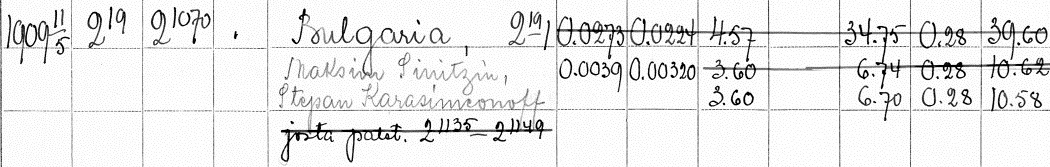 1909 11/5 2¹⁹ 2¹⁰⁷⁰ . Bulgaria, 2¹⁹/1 0.0273 0.0224 4.57 34.75 0.28 39.60
Maksim Sinitzin, 0.0039 0.00320 3.60 6.74 0.28 10.62
Stepan Karasimeonoff 3.60 6.70 0.28 10.58
josta palst. 2¹¹³⁵ – 2¹¹⁴⁹